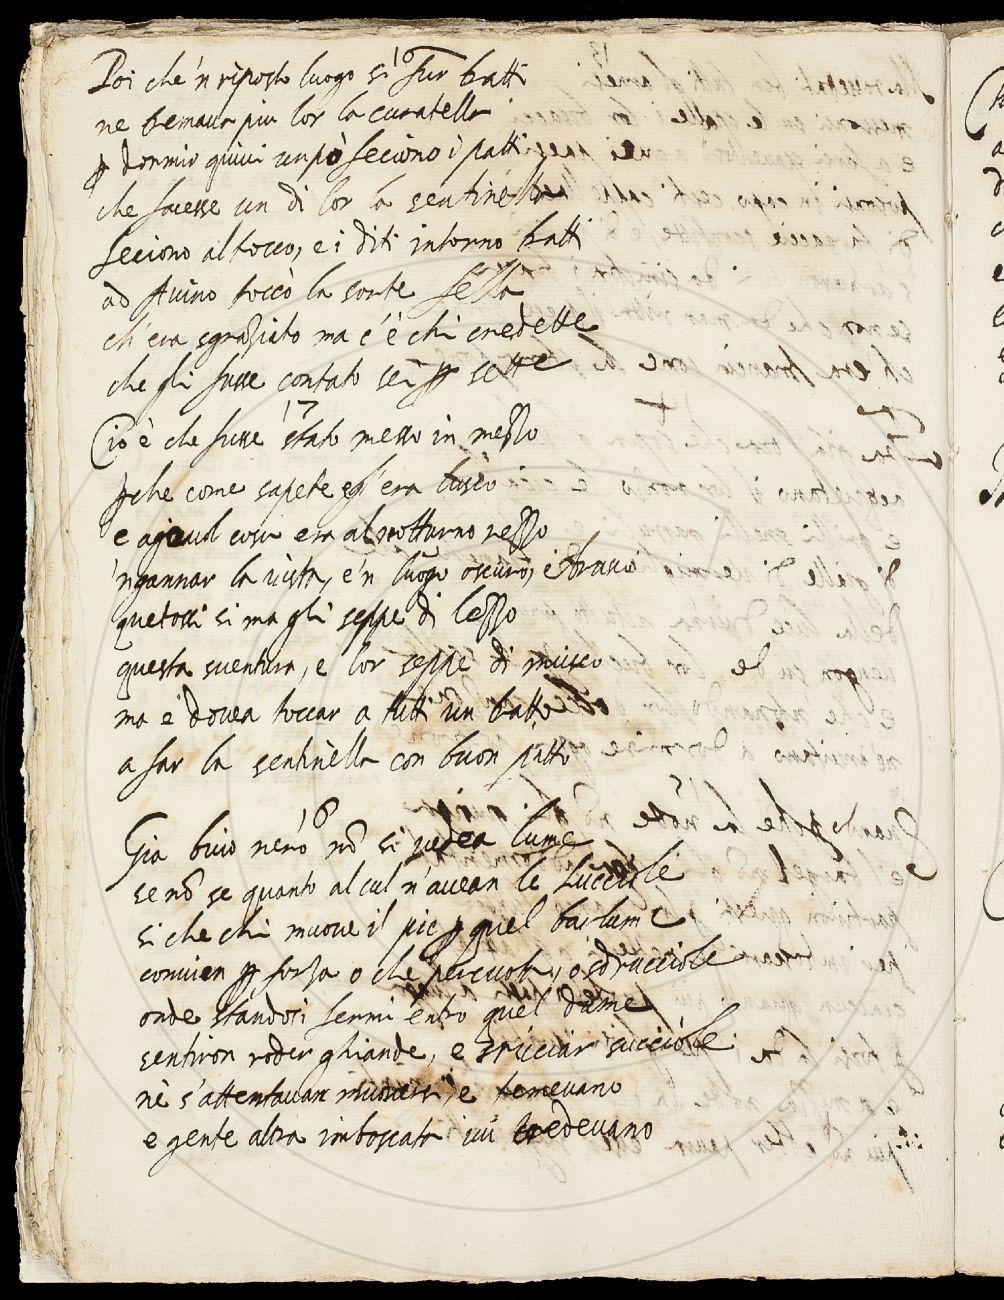 16
Poi che'n riposto luogo si fur tratti
ne tremava piu lor la curatella
p dormir quivi un pò feciono i patti
che facesse un di lor la sentinella
feciono al tocco, e i diti intorno tratti
ad Avino toccò la sorte fella
ch'era sgraziato ma c'è chi credette
che gli fusse contato sei p sette
17
Cio è che fusse stato messo in mezzo
pche come sapete egl'era lusco
e agevol cosa era al notturno rezzo
'ngannar la vista, e'n luogo oscuro, e brusco
quetossi si ma gli seppe di lezzo
questa sventura, e lor seppe di musco
ma e' dovea toccar a tutti un tratto
a far la sentinella con buon patto
18
Gia buio nero nō si vedea lume
se nō se quanto al cul n'avean le lucciole
si che chi muove il pie p quel barlume
convien p forza o che percuota, o sdrucciole
onde standosi fermi entro quel dume
sentiron roder ghiande, e sbucciar succiole
nè s'attentavan muoversi, e temevano
e gente altra imboscata ivi credevano